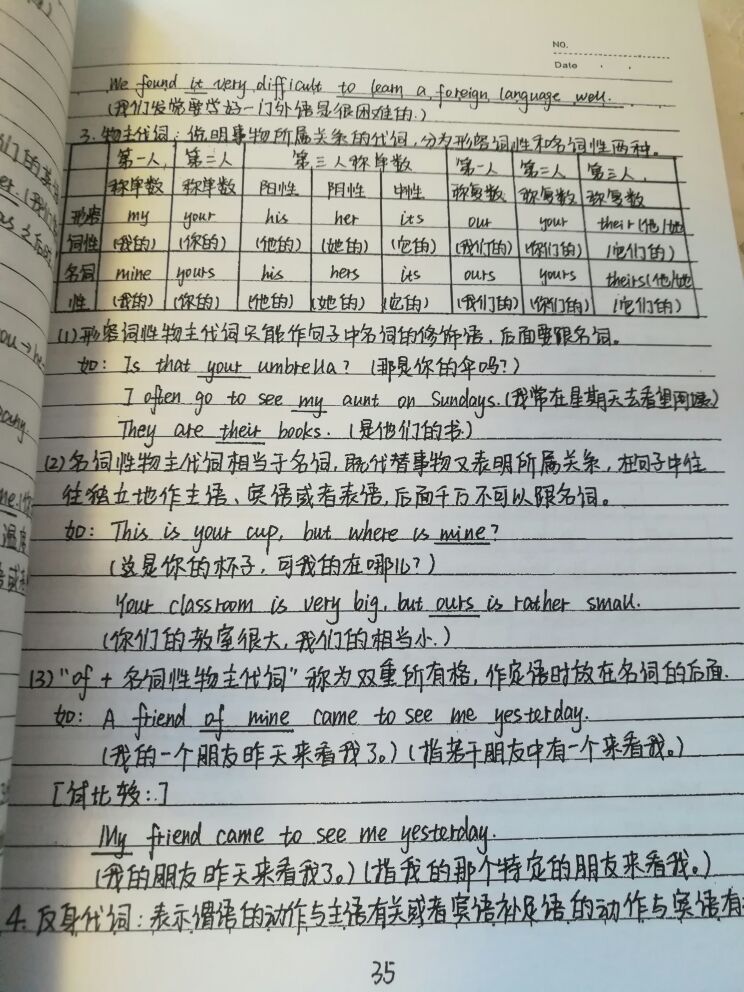 NO.
Date
We found it very difficult to learn a foreign language well.
(我们发觉要学好一门外语是很困难的.)
3. 物主代词: 说明事物所属关系的代词, 分为形容词性和名词性两种。
第一人 第二人 第三人称单数 第一人 第二人 第三人
称单数 称单数 阳性 阴性 中性 称复数 称复数 称复数
形容 my your his her its our your their (他/她
词性 (我的) (你的) (他的) (她的) (它的) (我们的) (你们的) /它们的)
名词 mine yours his hers its ours yours theirs (他/她
性 (我的) (你的) (他的) (她的) (它的) (我们的) (你们的) /它们的)
(1) 形容词性物主代词只能作句子中名词的修饰语, 后面要跟名词。
如: Is that your umbrella? (那是你的伞吗?)
I often go to see my aunt on Sundays. (我常在星期天去看望阿姨)
They are their books. (是他们的书.)
(2) 名词性物主代词相当于名词, 既代替事物又表明所属关系, 在句子中往
往独立地作主语、宾语或者表语, 后面千万不可以跟名词。
如: This is your cup, but where is mine?
(这是你的杯子, 可我的在哪儿?)
Your classroom is very big, but ours is rather small.
(你们的教室很大, 我们的相当小.)
(3) "of + 名词性物主代词" 称为双重所有格, 作定语时放在名词的后面.
如: A friend of mine came to see me yesterday.
(我的一个朋友昨天来看我了。) (指若干朋友中有一个来看我。)
[试比较:]
My friend came to see me yesterday.
(我的朋友昨天来看我了。) (指我的那个特定的朋友来看我。)
4. 反身代词: 表示谓语的动作与主语有关或者宾语补足语的动作与宾语有
35